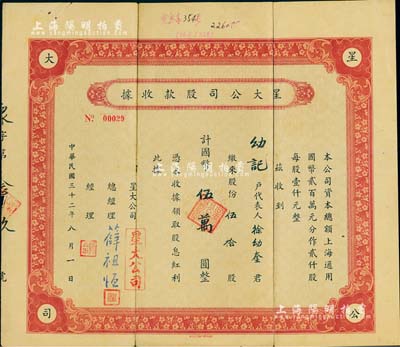 上海陽明拍賣
星大公司
星大公司股款收據
No 00029
本公司資本總額上海通用
國幣貳百萬元分作貳仟股
每股壹仟元整
茲收到
幼記 戶代表人 徐幼奎 君
繳來股份 伍拾 股
計國幣 伍萬 圓整
憑本收據領取股息紅利
此據
星大公司
總經理 薛祖恆
經理
星大公司
中華民國三十二年八月一日